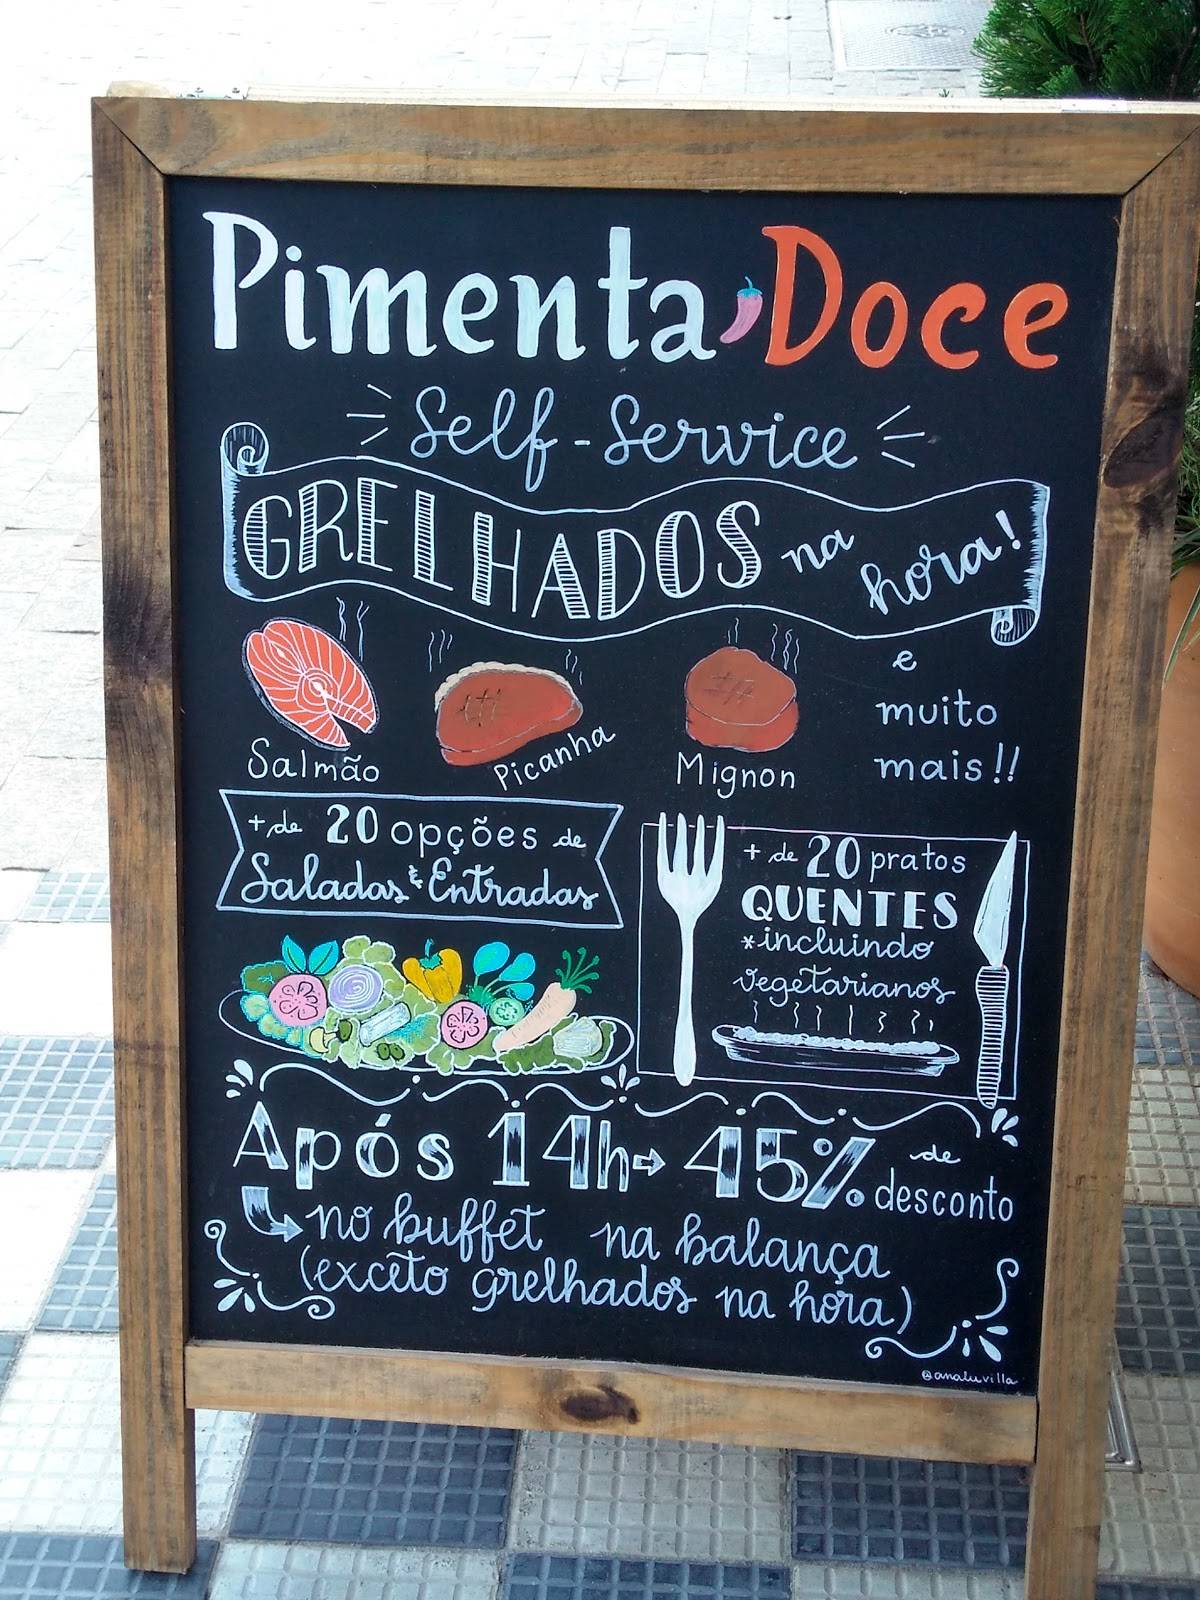 Pimenta Doce
Self-Service
GRELHADOS na hora!
Salmão
Picanha
Mignon
e
muito
mais!!
+ de 20 opções de
Saladas & Entradas
+ de 20 pratos
QUENTES
*incluindo
vegetarianos
Após 14h → 45% de desconto
no buffet na balança
(exceto grelhados na hora)
@analuvilla